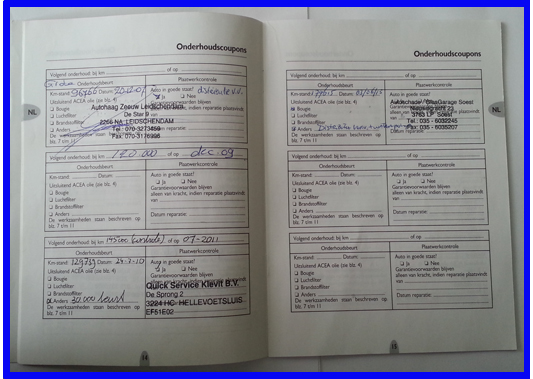 Onderhoudscoupons
Volgend onderhoud: bij km of op
Onderhoudsbeurt Plaatswerkcontrole
Km-stand: 96766 Datum: Auto in goede staat?
Uitsluitend ACEA olie (zie blz. 4) Ja Nee
Bougie Garantievoorwaarden blijven
Luchtfilter alleen van kracht, indien reparatie plaatsvindt
Brandstoffilter van
Anders
De werkzaamheden staan beschreven op
blz. 7 t/m 11
Autohaag Zeeuw Leidschendam
De Star 9
2266 NA LEIDSCHENDAM
Tel.: 070-3273469
Fax: 070-3176996
NL
Volgend onderhoud: bij km 120.000 of op dec. 09
Onderhoudsbeurt Plaatswerkcontrole
Km-stand: Datum: Auto in goede staat?
Uitsluitend ACEA olie (zie blz. 4) Ja Nee
Bougie Garantievoorwaarden blijven
Luchtfilter alleen van kracht, indien reparatie plaatsvindt
Brandstoffilter van
Anders
De werkzaamheden staan beschreven op Datum reparatie:
blz. 7 t/m 11
Volgend onderhoud: bij km 145000 of op 07-2011
Onderhoudsbeurt Plaatswerkcontrole
Km-stand: 124759 Datum: 24-7-10 Auto in goede staat?
Uitsluitend ACEA olie (zie blz. 4) Ja Nee
Bougie Garantievoorwaarden blijven
Luchtfilter alleen van kracht, indien reparatie plaatsvindt
Brandstoffilter
Anders 30.000 beurt
De werkzaamheden staan beschreven op
blz. 7 t/m 11
Quick Service Klevit B.V.
De Sprong 2
3224 HC HELLEVOETSLUIS
EF51E02
Onderhoudscoupons
Volgend onderhoud: bij km of op
Onderhoudsbeurt Plaatswerkcontrole
Km-stand: Datum: Auto in goede staat?
Uitsluitend ACEA olie (zie blz. 4)
Bougie
Luchtfilter alleen van kracht, indien reparatie plaatsvindt
Brandstoffilter
Anders
De werkzaamheden staan beschreven op
blz. 7 t/m 11
Autoschade/GlasGarage Soest
3763 LP Soest
Tel.: 035 - 6032245
Fax: 035 - 6035207
NL
Volgend onderhoud: bij km of op
Onderhoudsbeurt Plaatswerkcontrole
Km-stand: Datum: Auto in goede staat?
Uitsluitend ACEA olie (zie blz. 4) Ja Nee
Bougie Garantievoorwaarden blijven
Luchtfilter alleen van kracht, indien reparatie plaatsvindt
Brandstoffilter van
Anders
De werkzaamheden staan beschreven op Datum reparatie:
blz. 7 t/m 11
Volgend onderhoud: bij km of op
Onderhoudsbeurt Plaatswerkcontrole
Km-stand: Datum: Auto in goede staat?
Uitsluitend ACEA olie (zie blz. 4) Ja Nee
Bougie Garantievoorwaarden blijven
Luchtfilter alleen van kracht, indien reparatie plaatsvindt
Brandstoffilter van
Anders
De werkzaamheden staan beschreven op Datum reparatie:
blz. 7 t/m 11